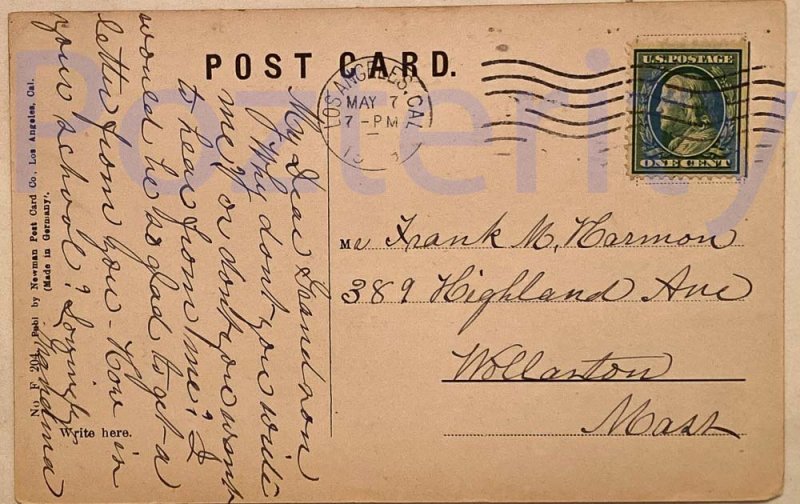 POST CARD.
LOS ANGELES, CAL
MAY 7
7 - PM
U.S. POSTAGE
ONE CENT
My dear Grandson
Why dont you write
me? or dont you want
to hear from me? I
would be so glad to get a
letter from you - How is
your school? Lovingly
Grandma
Mr Frank M, Harmon
389 Highland Ave
Wollaston
Mass
No F 204 Publ by Newman Post Card Co., Los Angeles, Cal.
(Made in Germany.)
Write here.
Posterity